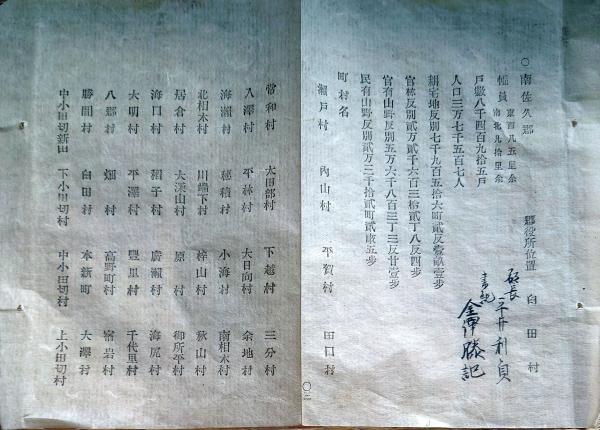 〇南佐久郡　郡役所位置　臼田村
幅員　東西八五里余
南北九拾里余
郡長　平井利貞
書記
戸数八千四百九拾五戸
人口三万七千五百七人
耕宅地反別七千九百五拾六町貳反壹畝壹步
官林反別貳万貳千六百三拾貳丁八反四步
官有山野反別五万六千八百三丁三反廿壹步
民有山野反別貳万二千拾貳町貳畝五步
町村名
瀬戸村　內山村　平賀村　田口村
〇三
常和村　太田部村　下越村　三分村
入澤村　平林村　大日向村　余地村
海瀬村　穂積村　小海村　南相木村
北相木村　川端下村　梓山村　秋山村
居倉村　大深山村　原村　御所平村
海口村　廣瀬村　海尻村
大明村　平澤村　豐里村　千代里村
八郡村　畑村　高野町村　宿岩村
勝間村　臼田村　本新町　大澤村
中小田切新田　下小田切村　中小田切村　上小田切村